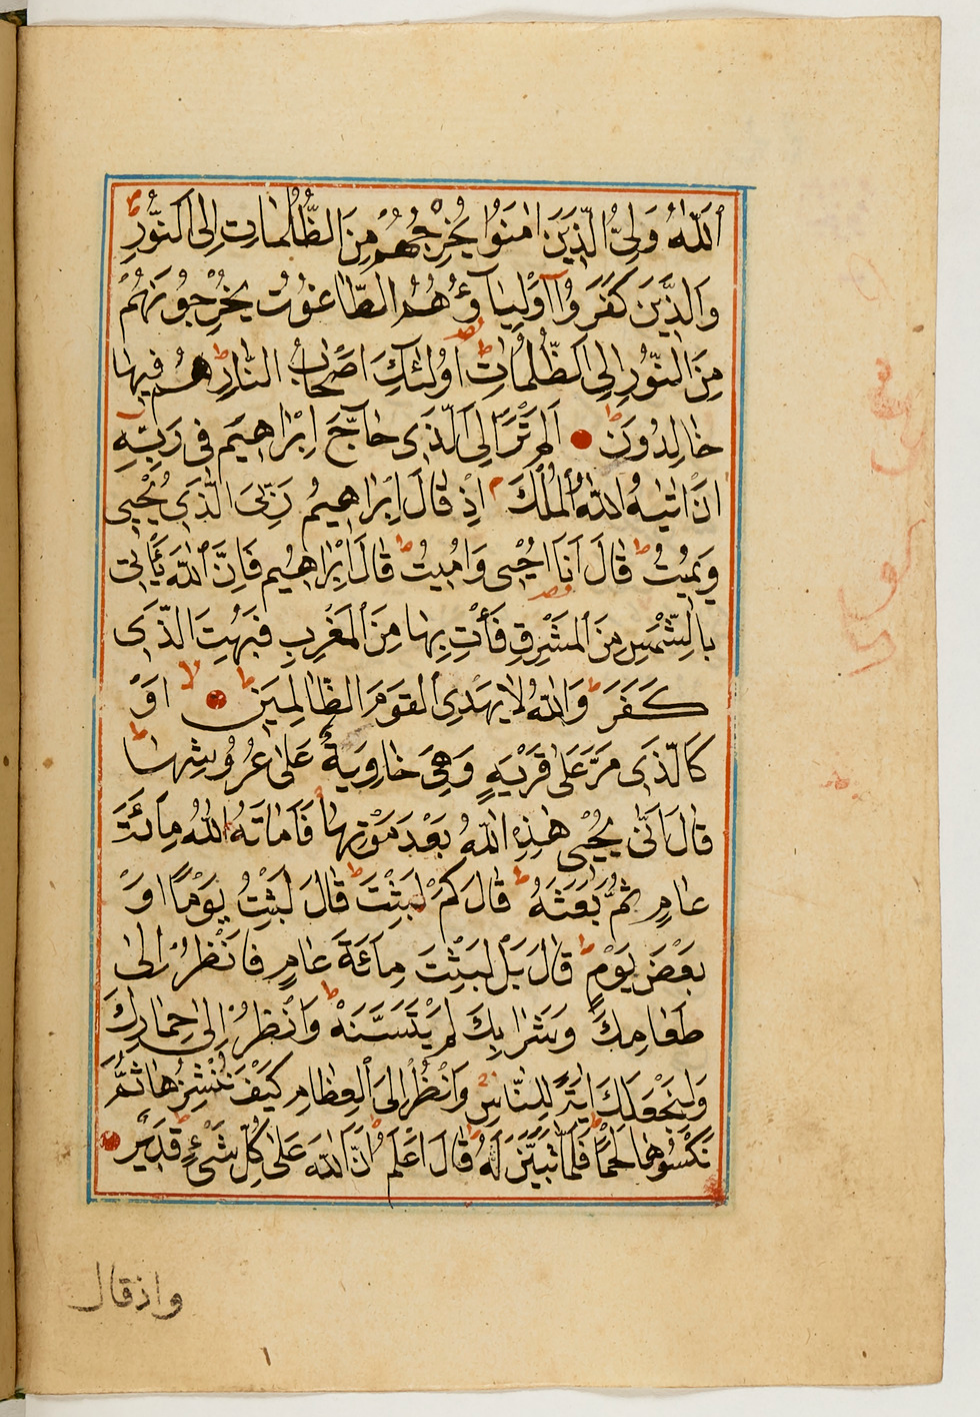 اَللّٰهُ وَلِىُّ الَّذِينَ اٰمَنُوا يُخْرِجُهُمْ مِنَ الظُّلُمَاتِ اِلَى النُّورِ ط
وَالَّذِينَ كَفَرُوا اَوْلِيَاۤؤُهُمُ الطَّاغُوتُ يُخْرِجُونَهُمْ
مِنَ النُّورِ اِلَى الظُّلُمَاتِ ط اُولٰئِكَ اَصْحَابُ النَّارِ ط هُمْ فِيهَا
خَالِدُونَ ط اَلَمْ تَرَ اِلَى الَّذِى حَاۤجَّ اِبْرَاهِيمَ فِى رَبِّهِ
اَنْ اٰتٰيهُ اللّٰهُ الْمُلْكَ م اِذْ قَالَ اِبْرَاهِيمُ رَبِّىَ الَّذِى يُحْيِى
وَيُمِيتُ ط قَالَ اَنَا اُحْيِى وَاُمِيتُ ط قَالَ اِبْرَاهِيمُ فَاِنَّ اللّٰهَ يَأْتِى
بِالشَّمْسِ مِنَ الْمَشْرِقِ فَأْتِ بِهَا مِنَ الْمَغْرِبِ فَبُهِتَ الَّذِى
كَفَرَ ط وَاللّٰهُ لَا يَهْدِى الْقَوْمَ الظَّالِمِينَ ط لا اَوْ
كَالَّذِى مَرَّ عَلٰى قَرْيَةٍ وَهِىَ خَاوِيَةٌ عَلٰى عُرُوشِهَا ط
قَالَ اَنّٰى يُحْيِى هٰذِهِ اللّٰهُ بَعْدَ مَوْتِهَا فَاَمَاتَهُ اللّٰهُ مِائَةَ
عَامٍ ثُمَّ بَعَثَهُ ط قَالَ كَمْ لَبِثْتَ ط قَالَ لَبِثْتُ يَوْمًا اَوْ
بَعْضَ يَوْمٍ ط قَالَ بَلْ لَبِثْتَ مِائَةَ عَامٍ فَانْظُرْ اِلٰى
طَعَامِكَ وَشَرَابِكَ لَمْ يَتَسَنَّهْ ط وَانْظُرْ اِلٰى حِمَارِكَ
وَلِنَجْعَلَكَ اٰيَةً لِلنَّاسِ وَانْظُرْ اِلَى الْعِظَامِ كَيْفَ نُنْشِزُهَا ثُمَّ
نَكْسُوهَا لَحْمًا ط فَلَمَّا تَبَيَّنَ لَهُ قَالَ اَعْلَمُ اَنَّ اللّٰهَ عَلٰى كُلِّ شَىْءٍ قَدِيرٌ
واذقال